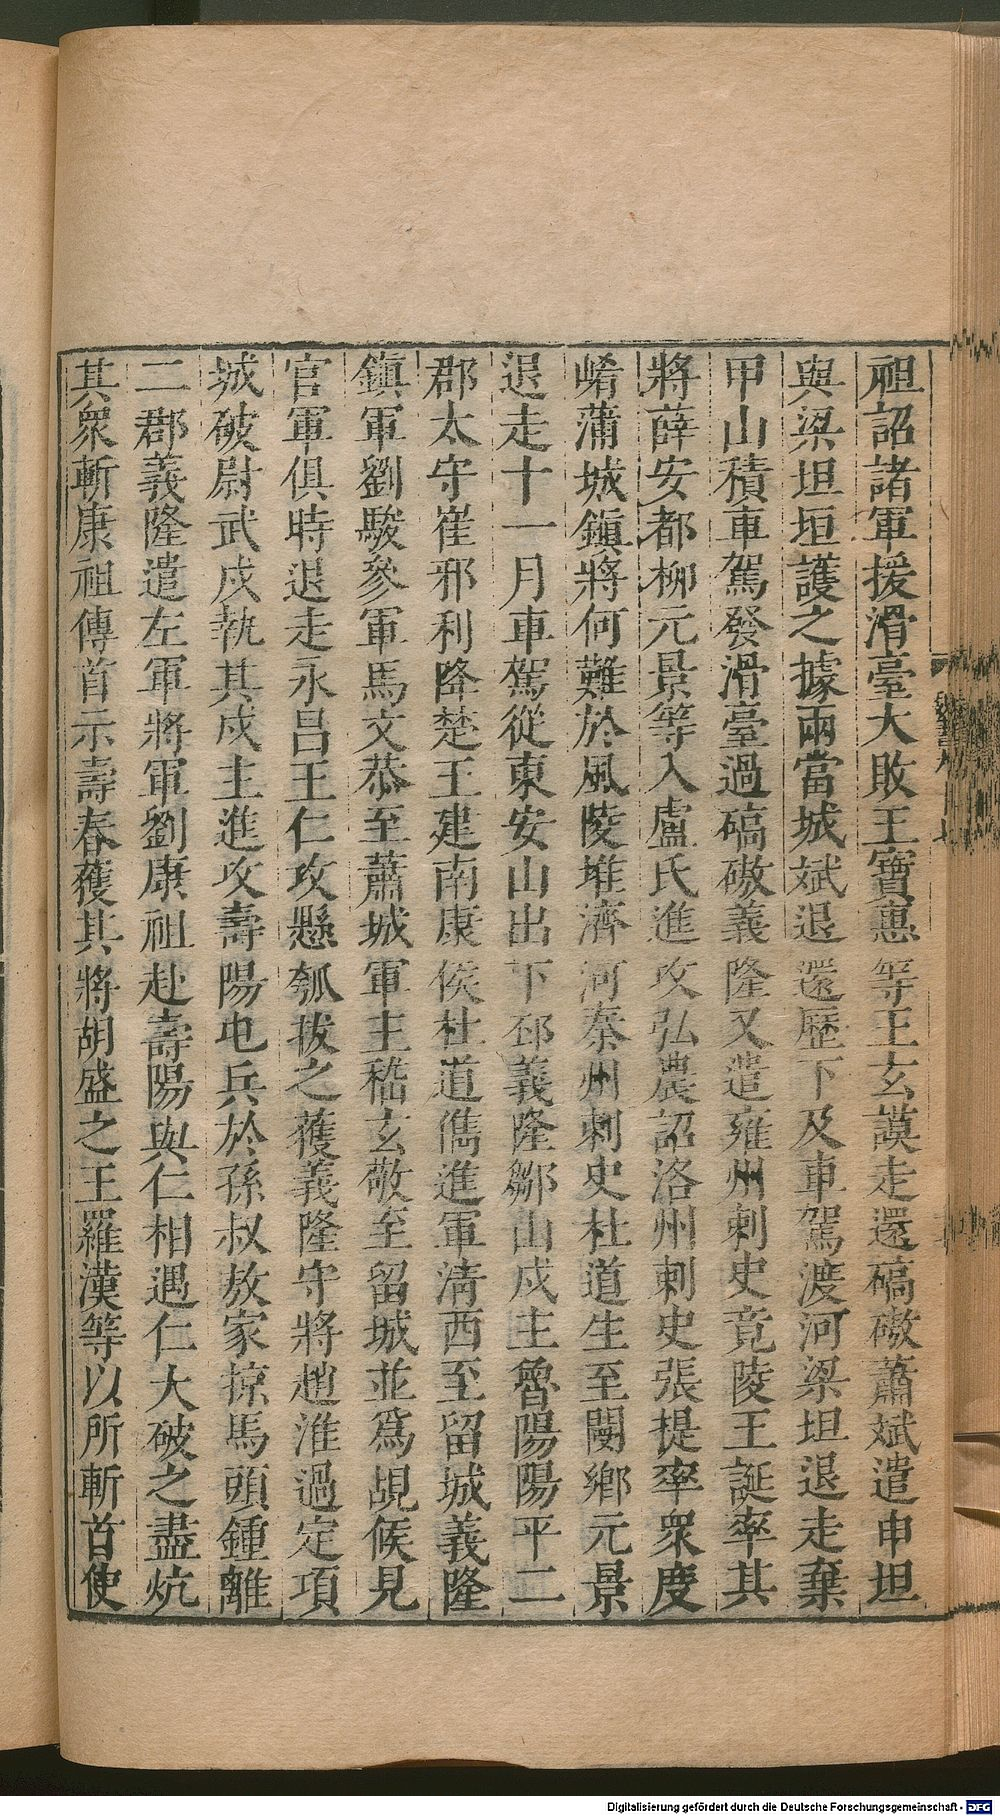 祖詔諸軍援滑臺大敗王寶惠等王玄謨走還碻磝蕭斌遣申坦
與梁坦垣護之據兩當城斌退還歷下及車駕渡河梁坦退走棄
甲山積車駕發滑臺過碻磝義隆又遣雍州刺史竟陵王誕率其
將薛安都柳元景等入盧氏進攻弘農詔洛州刺史張提率衆度
崤蒲城鎮將何難於風陵堆濟河秦州刺史杜道生至閿鄉元景
退走十一月車駕從東安山出下邳義隆鄒山戍主魯陽陽平二
郡太守崔邪利降楚王建南康侯杜道儁進軍淸西至留城義隆
鎮軍劉駿參軍馬文恭至蕭城軍主嵇玄敬至留城並爲覘候見
官軍俱時退走永昌王仁攻懸瓠拔之獲義隆守將趙淮過定項
城破尉武戍執其戍主進攻壽陽屯兵於孫叔敖冢掠馬頭鍾離
二郡義隆遣左軍將軍劉康祖赴壽陽與仁相遇仁大破之盡炕
其衆斬康祖傳首示壽春獲其將胡盛之王羅漢等以所斬首使
Digitalisierung gefördert durch die Deutsche Forschungsgemeinschaft - DFG